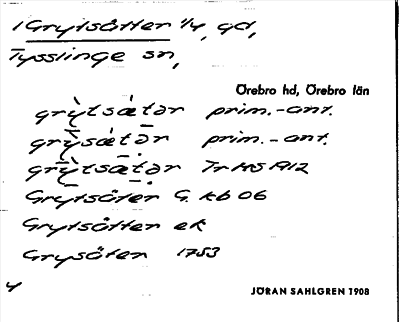 1 Grytsätter 1/4, gd,
Tysslinge sn,
Örebro hd, Örebro län
grỳtsǻtər prim.-ant.
grỳsǻtər prim.-ant.
grỳtsǽtər Tr MS 1912
Grytsäter G. kb 06
Grytsätter ek
Grysäter 1753
JÖRAN SAHLGREN 1908